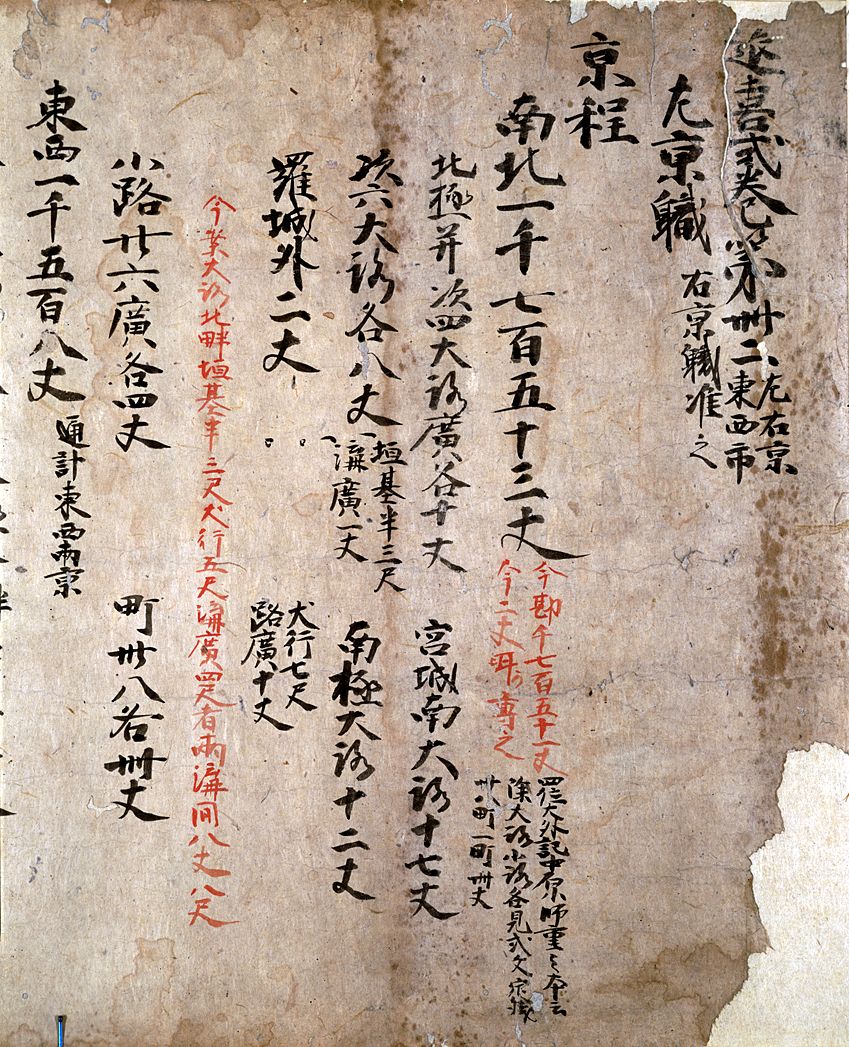 延喜式卷第卌二
左右京
東西市
左京職
右京職准之
京程
南北一千七百五十三丈
今勘千七百五十一丈
今二丈
罡大外記中原師重之本云
大路小路各見式文
卅八町一町卌丈
北極并次四大路廣各十丈
宮城南大路十七丈
次六大路各八丈
垣基半三尺
溝廣一丈
南極大路十二丈
羅城外二丈
犬行七尺
路廣十丈
今案大路北畔垣基半三尺犬行五尺溝廣四尺者兩溝間八丈八尺
小路廿六廣各四丈
町卅八各卌丈
東西一千五百八丈
通計東西兩京